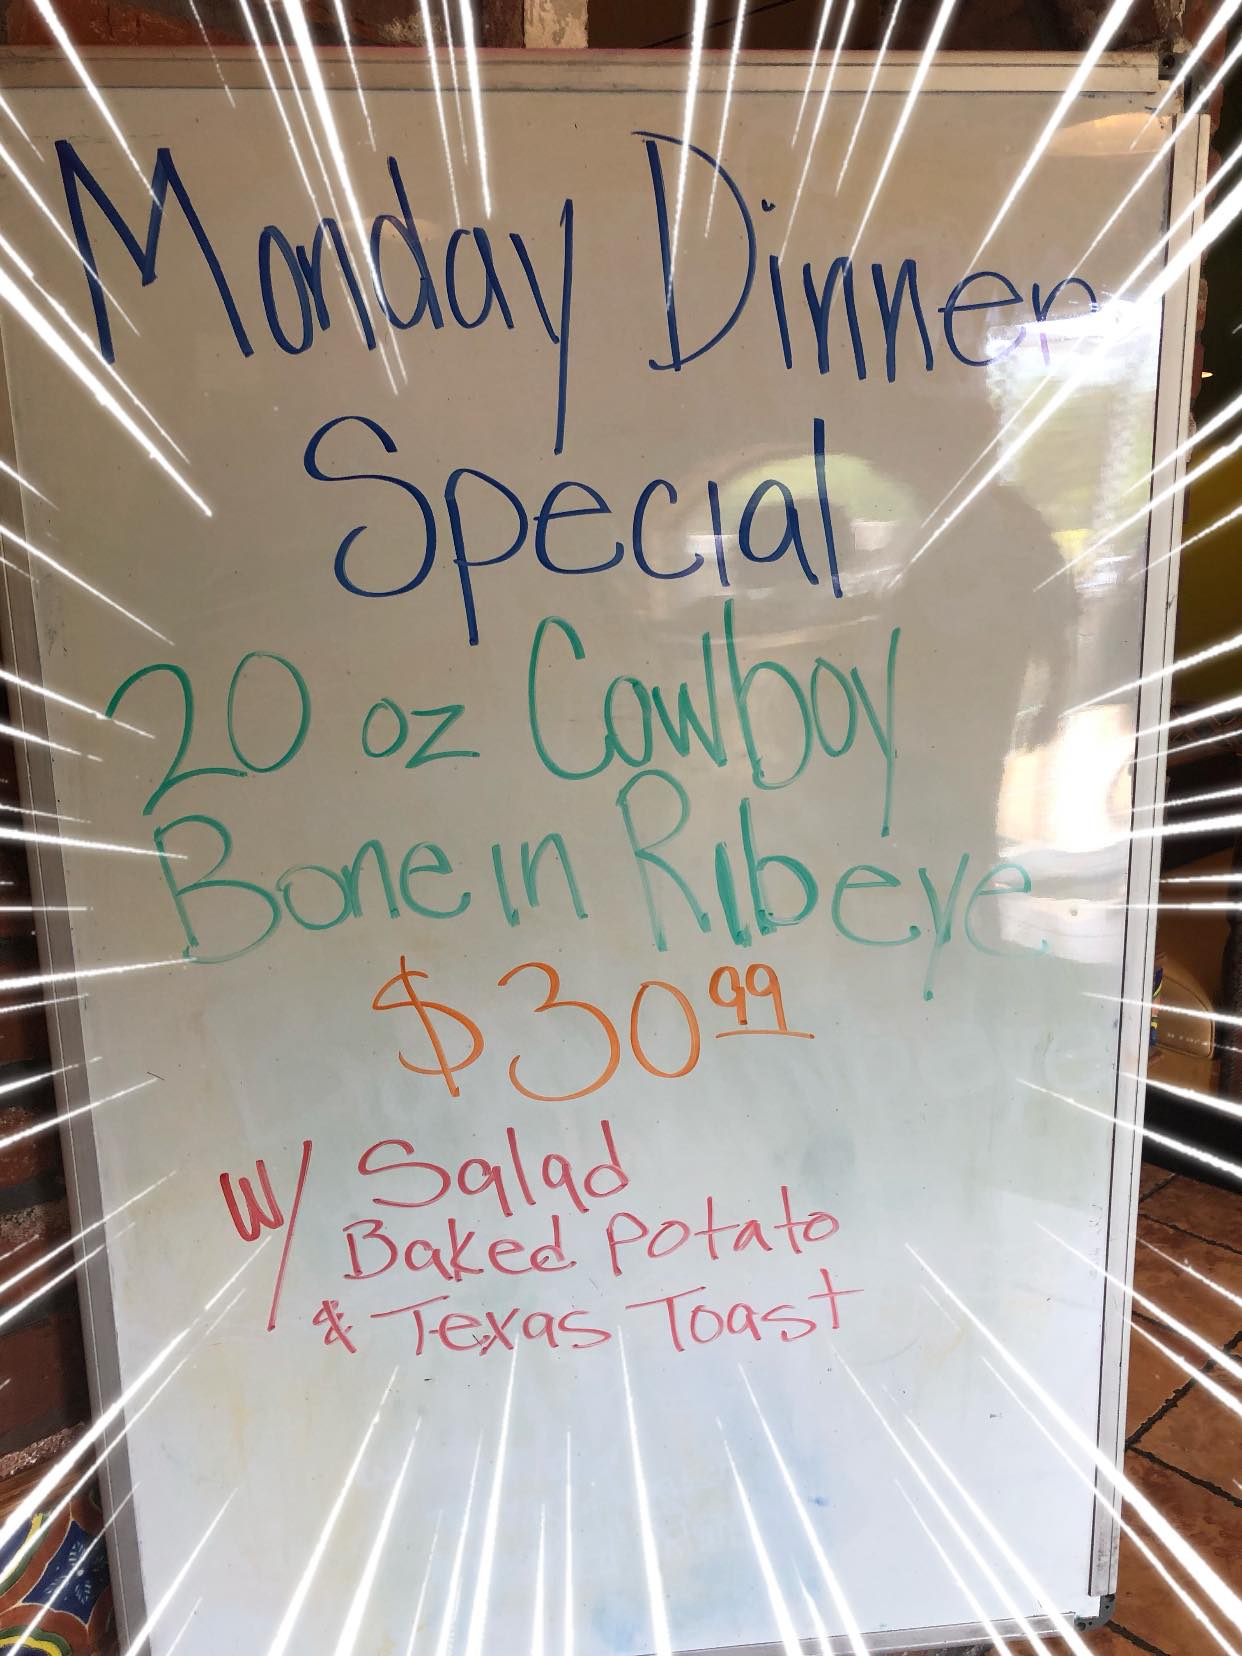 Monday Dinner
Special
20 oz Cowboy
Bone in Ribeye
$30 99
w/ Salad
Baked Potato
& Texas Toast